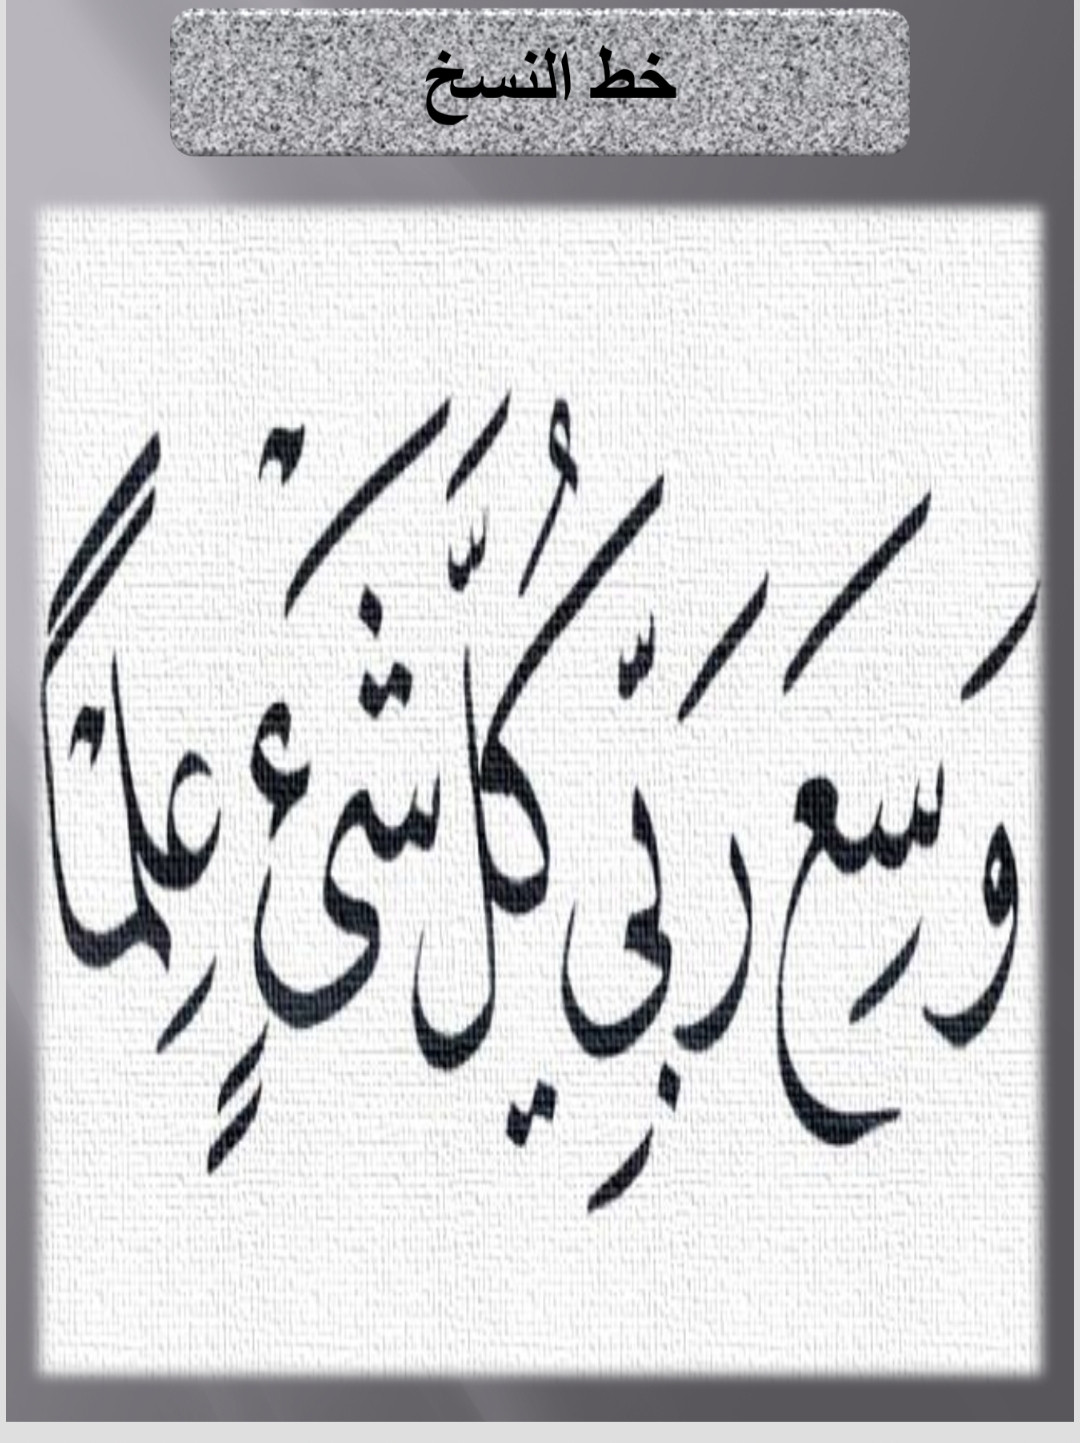 خط النسخ
وَسِعَ رَبِّي كُلَّ شَىْءٍ عِلْمًا